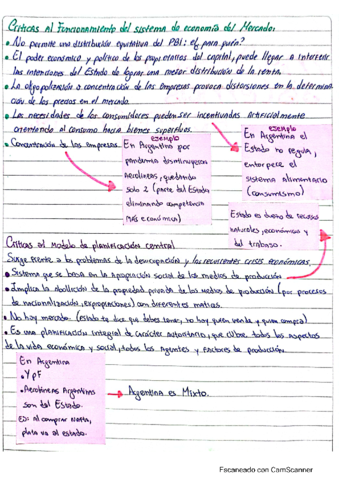 Criticas al Funcionamiento del sistema de economía del Mercado:
• No permite una distribución equitativa del PBI: ej para quién?
• El poder económico y político de los propietarios del capital, puede llegar a interferir
las intenciones del Estado de lograr una mejor distribución de la renta.
• La oligopolización o concentración de las empresas provoca distorsiones en la determina
ción de los precios en el mercado.
• Las necesidades de los consumidores pueden ser incentivadas artificialmente
orientando al consumo hacia bienes superfluos.
• Concentración de las empresas.
ejemplo
En Argentina por
pandemia
Aerolíneas, quedando
solo 2 (parte del Estado
eliminando competencia
más económica)
ejemplo
En Argentina el
Estado no regula,
entorpece el
sistema alimentario
(consumismo)
Estado es dueño de recursos
naturales, económicos y
del trabajo.
Criticas al Modelo de planificación central
Surge frente a los problemas de la desocupación y las recurrentes crisis económicas.
• Sistema que se basa en la apropiación social de los medios de producción
• Implica la abolición de la propiedad privada de los medios de producción (por procesos
de nacionalización, expropiaciones) con diferentes matices.
• No hay mercado. (estado te dice que debes tener, no hay quien venda y quien compra)
• Es una planificación integral de carácter autoritario, que cubre todos los aspectos
de la vida económica y social, todos los agentes y factores de producción.
En Argentina
• YPF
• Aerolíneas Argentinas
son del Estado.
EJ: al comprar nafta,
plata va al estado.
Argentina es Mixto.
Escaneado con CamScanner